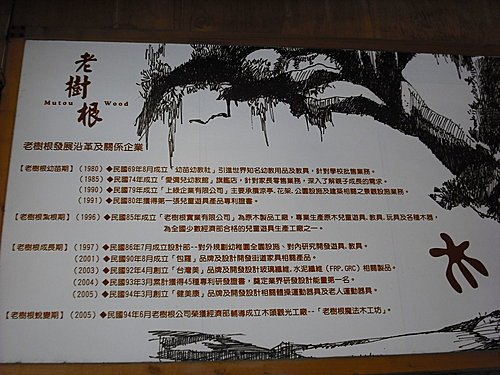 老樹根
Mutou Wood
老樹根發展沿革及關係企業
【老樹根幼苗期】(1980) ◆民國69年8月成立「幼苗幼教社」引進世界知名幼教用品及教具，針對學校批售業務。
(1985) ◆民國74年成立「愛彌兒幼教館」旗艦店，針對家長零售業務，深入了解親子成長的需求。
(1990) ◆民國79年成立「上綠企業有限公司」主要承攬涼亭.花架.公園設施及建築相關之景觀設施業務。
(1991) ◆民國80年獲得第一張兒童遊具產品專利證書。
【老樹根紮根期】(1996) ◆民國85年成立「老樹根實業有限公司」為原木製品工廠，專業生產原木兒童遊具.教具.玩具及各種木器，
為全國少數經濟部合格的兒童遊具生產工廠之一。
【老樹根成長期】(1997) ◆民國86年7月成立設計部--對外規劃幼稚園全園設施、對內研究開發遊具.教具。
(2001) ◆民國90年8月成立「包羅」品牌及設計開發街道家具相關產品。
(2003) ◆民國92年4月創立「台灣美」品牌及開發設計玻璃纖維.水泥纖維 (FRP.GRC) 相關製品。
(2004) ◆民國93年3月累計獲得45種專利研發證書，奠定業界研發設計能量第一名。
(2005) ◆民國94年3月創立「健美康」品牌及開發設計相關體操運動器具及老人運動器具。
【老樹根蛻變期】(2005) ◆民國94年6月老樹根公司榮獲經濟部輔導成立木頭觀光工廠--「老樹根魔法木工坊」。